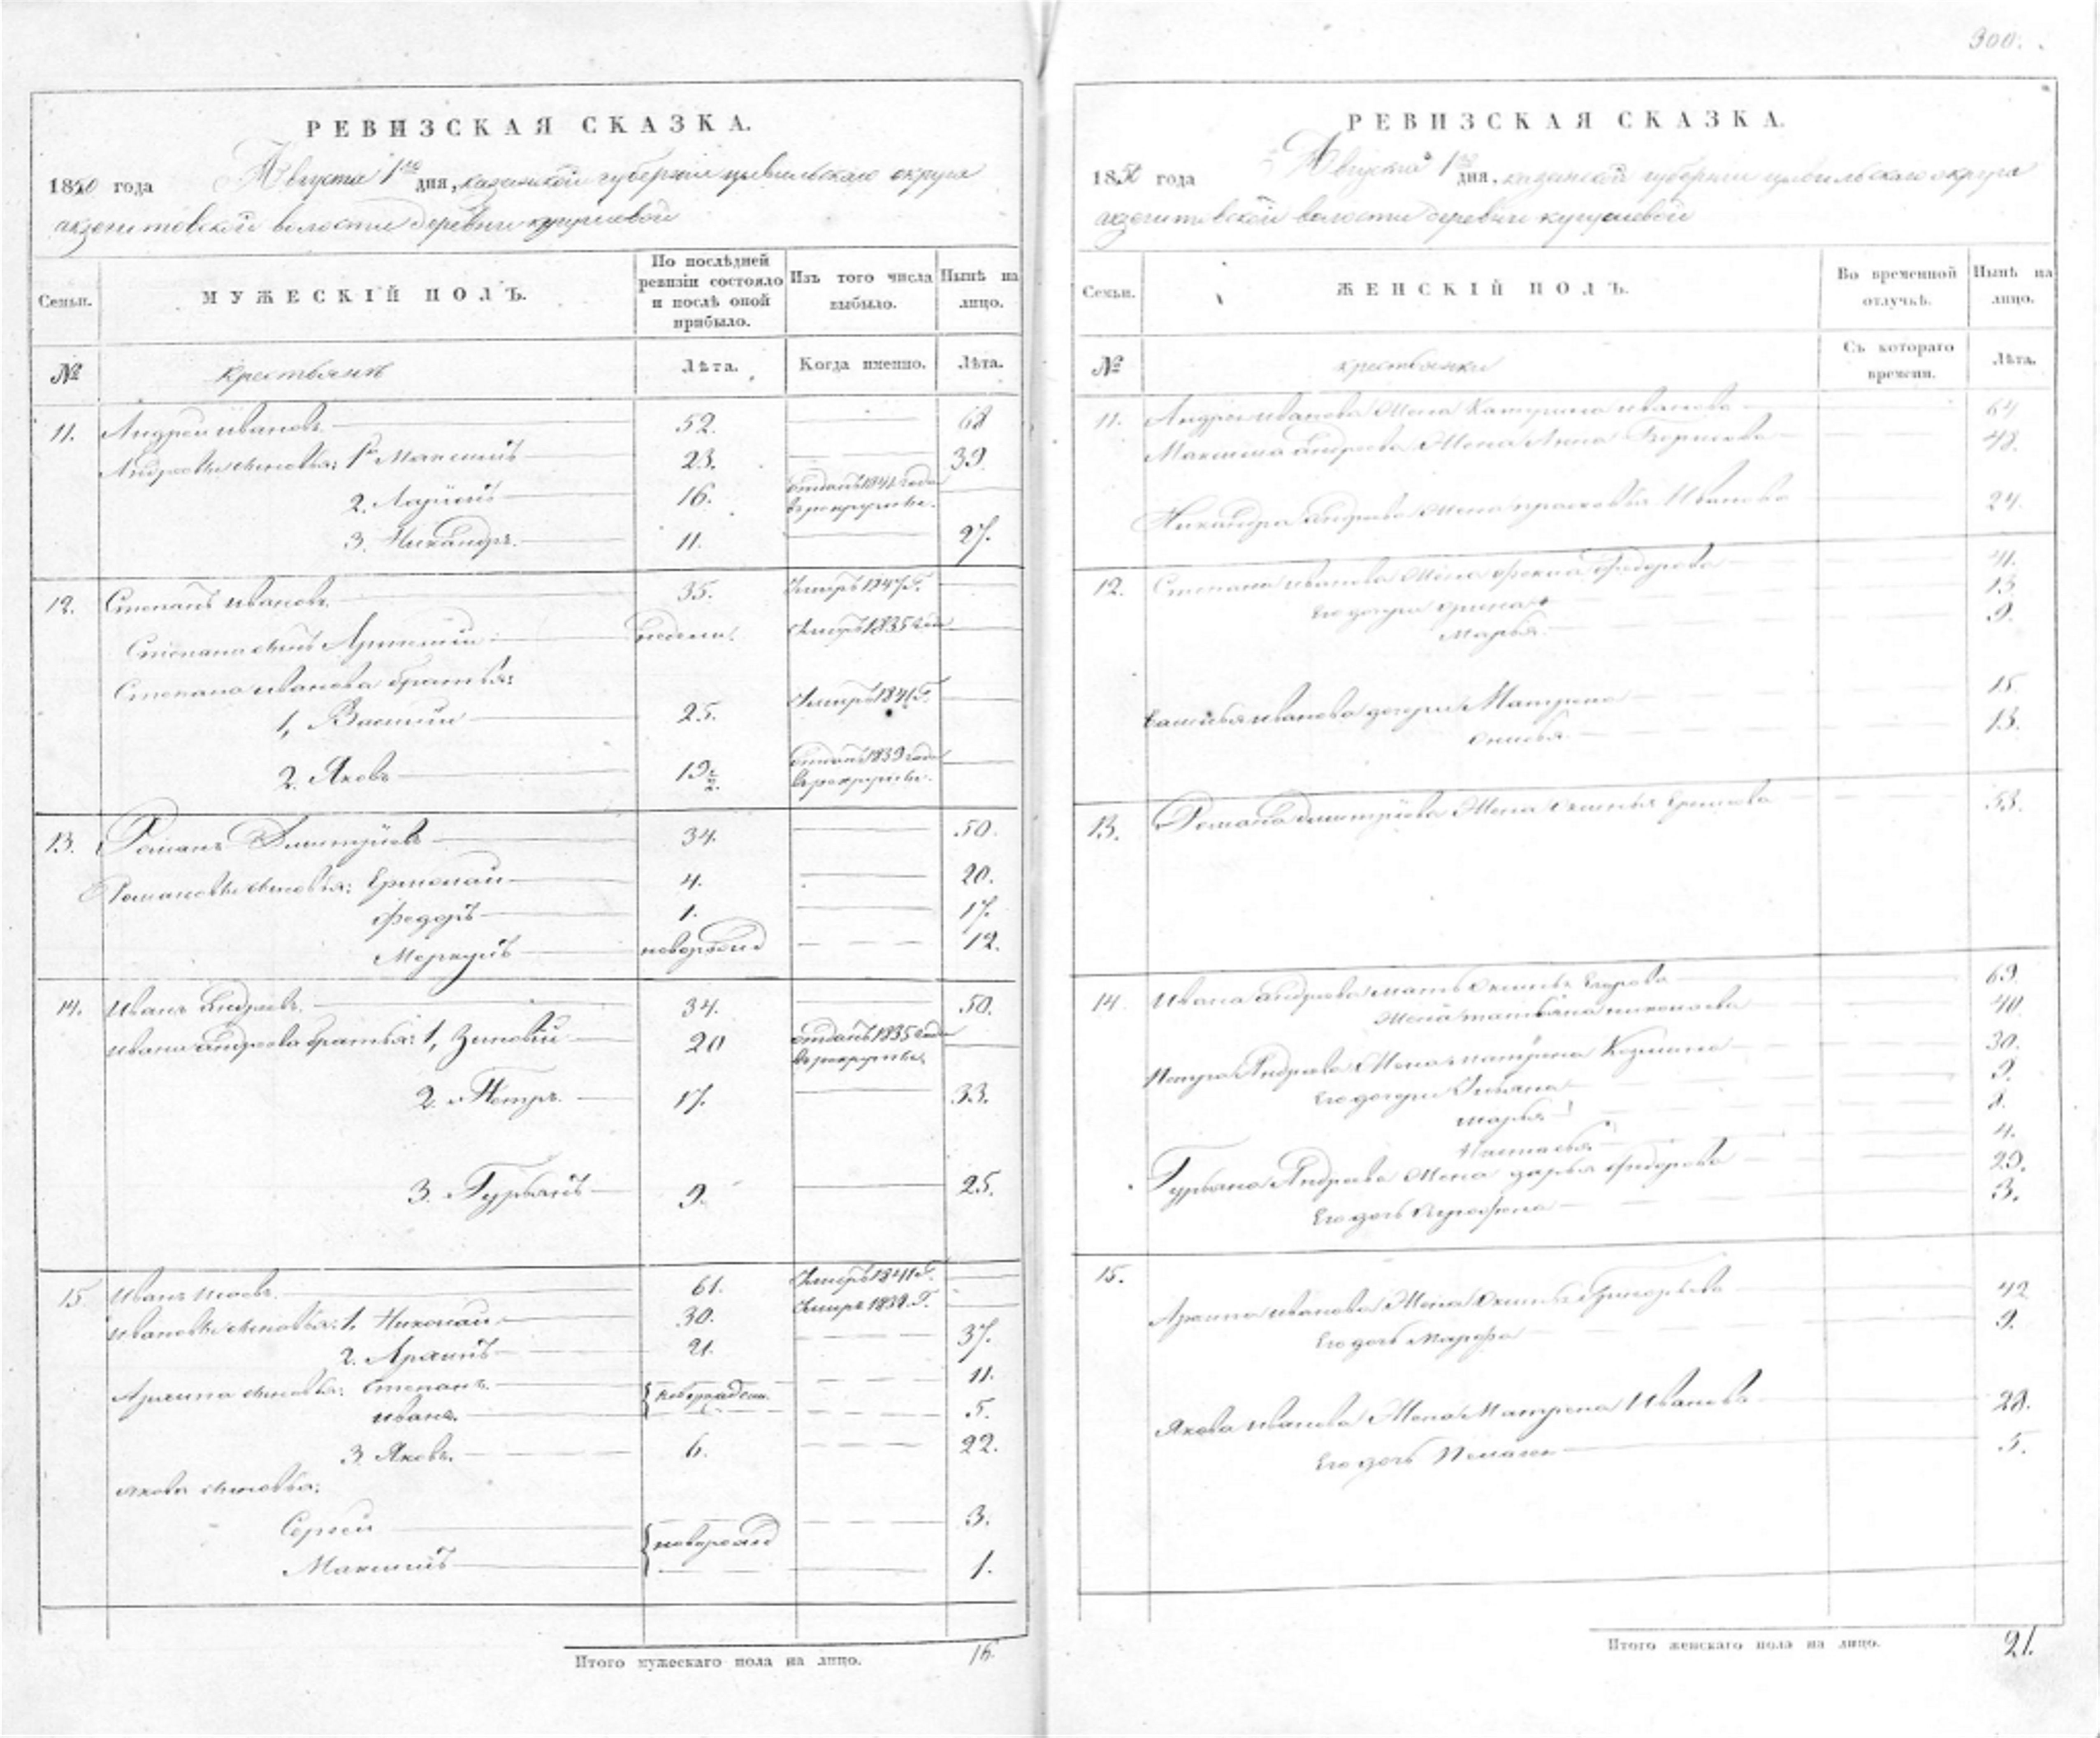 300.
РЕВИЗСКАЯ СКАЗКА.
1850 года Августа 1го дня, казанской губернии цивильскаго округа
акзегитовской волости деревни кугушевой
Семьи.
МУЖЕСКІЙ ПОЛЪ.
По послѣдней ревизіи состояло и послѣ оной прибыло.
Изъ того числа выбыло.
Нынѣ на лицо.
№ крестьянъ Лѣта. Когда именно. Лѣта.
11. Андрей ивановъ 52. 68
Андреевы сыновья: 1й Максимъ 23. 39
2. Ларионъ 16. отданъ 1841 года в рекруты.
3. Никандръ. 11. 27.
12. Степанъ ивановъ 35. Умеръ 1847 г.
Степана сынъ Артемий недели. Умеръ 1835 года
Степана иванова братья:
1, Василий 25. Умеръ 1841 г.
2. Яковъ 19 1/2. отданъ 1839 года в рекруты.
13. Романъ Дмитриевъ 34. 50.
Романовы сыновья: Ермолай 4. 20.
Федоръ 1. 17.
Меркулъ новорожд 12.
14. Иванъ Андреевъ 34. 50.
Ивана андреева братья: 1, Зиновий 20 отданъ 1835 года в рекруты.
2. Петръ 17. 33.
3. Гурьянъ 9. 25.
15. Иванъ 61. Умеръ 1841 г.
Ивановы сыновья: 1, Николай 30. Умеръ 1838 г.
2. Архипъ 21. 37.
Архипа сыновья: Степанъ новорожден. 11.
иванъ. 5.
3. Яковъ. 6. 22.
якова сыновья:
Сергей новорожд 3.
Максимъ 1.
Итого мужескаго пола на лицо. 16.
РЕВИЗСКАЯ СКАЗКА.
1850 года Августа 1го дня, казанской губернии цивильскаго округа
акзегитовской волости деревни кугушевой
Семьи.
ЖЕНСКІЙ ПОЛЪ.
Во временной отлучкѣ.
Нынѣ на лицо.
№ крестьянки Съ котораго времени. Лѣта.
11. Андрея иванова жена Катерина иванова 64
Максима андреева жена Анна Борисова 48.
Никандра андреева жена прасковья Иванова 24.
12. Степана иванова жена Федорова 41.
Его дочери орина 13.
Марья 9.
Василья иванова дочери Матрена 15.
Анисья 13.
13. Романа дмитриева жена Аксинья Ермолова 53.
14. Ивана андреева мать Аксинья Егорова 69.
Жена татьяна николаева 40.
Петра Андреева жена матрена Козмина 30.
Его дочери Ульяна 9.
марья 8.
Настасья 4.
Гурьяна Андреева жена дарья федорова 29.
Его дочь 3.
15. Архипа иванова жена Аксинья Григорьева 42
Его дочь Марфа 9.
Якова иванова жена Матрена Иванова 28.
Его дочь Пелагея 5.
Итого женскаго пола на лицо. 21.